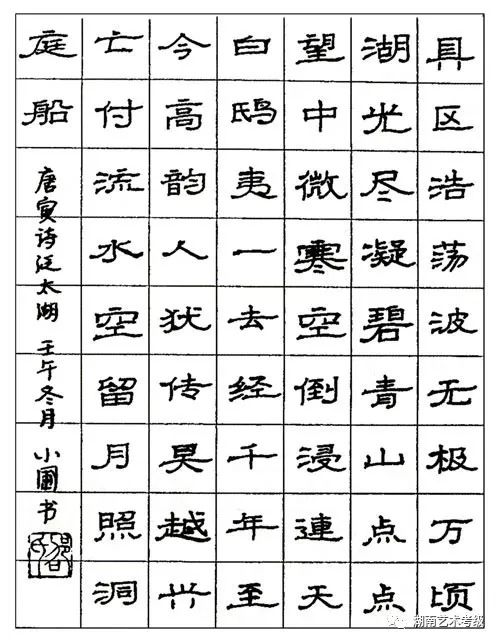 具区浩荡波无极万顷
湖光尽凝碧青山点点
望中微寒空倒浸連天
白鸱夷一去经千年至
今高韵人犹传吴越兴
亡付流水空留月照洞
庭船
唐寅诗泛太湖 壬午冬月 小圃书
湖南艺术考级